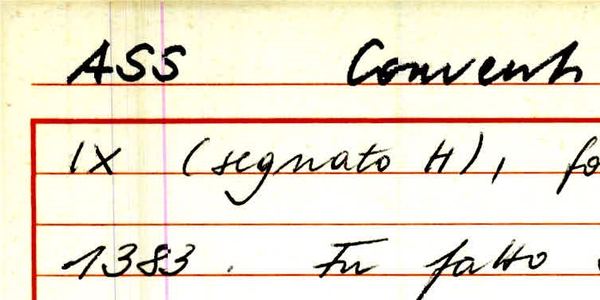 ASS Conventi
IX (segnato H), fo
1383. Fu fatto